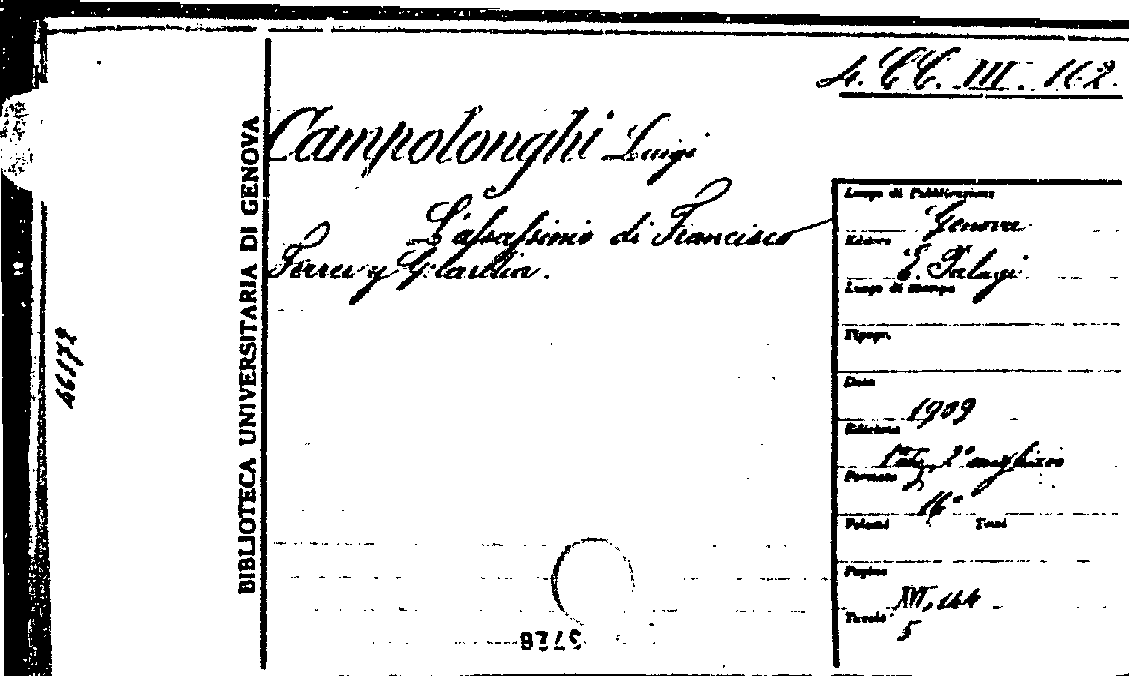 4. CC. III. 162.
Campolonghi Luigi
L'assassinio di Francisco
Ferrer y Guardia.
BIBLIOTECA UNIVERSITARIA DI GENOVA
66172
Luogo di Pubblicazione
Genova
Editore
E. Palagi
Luogo di stampa
Tipogr.
Data
1909
Edizione
2° migliaio
Formato
16°
Volumi Tomi
Pagine
XVI, 164
Tavole
5